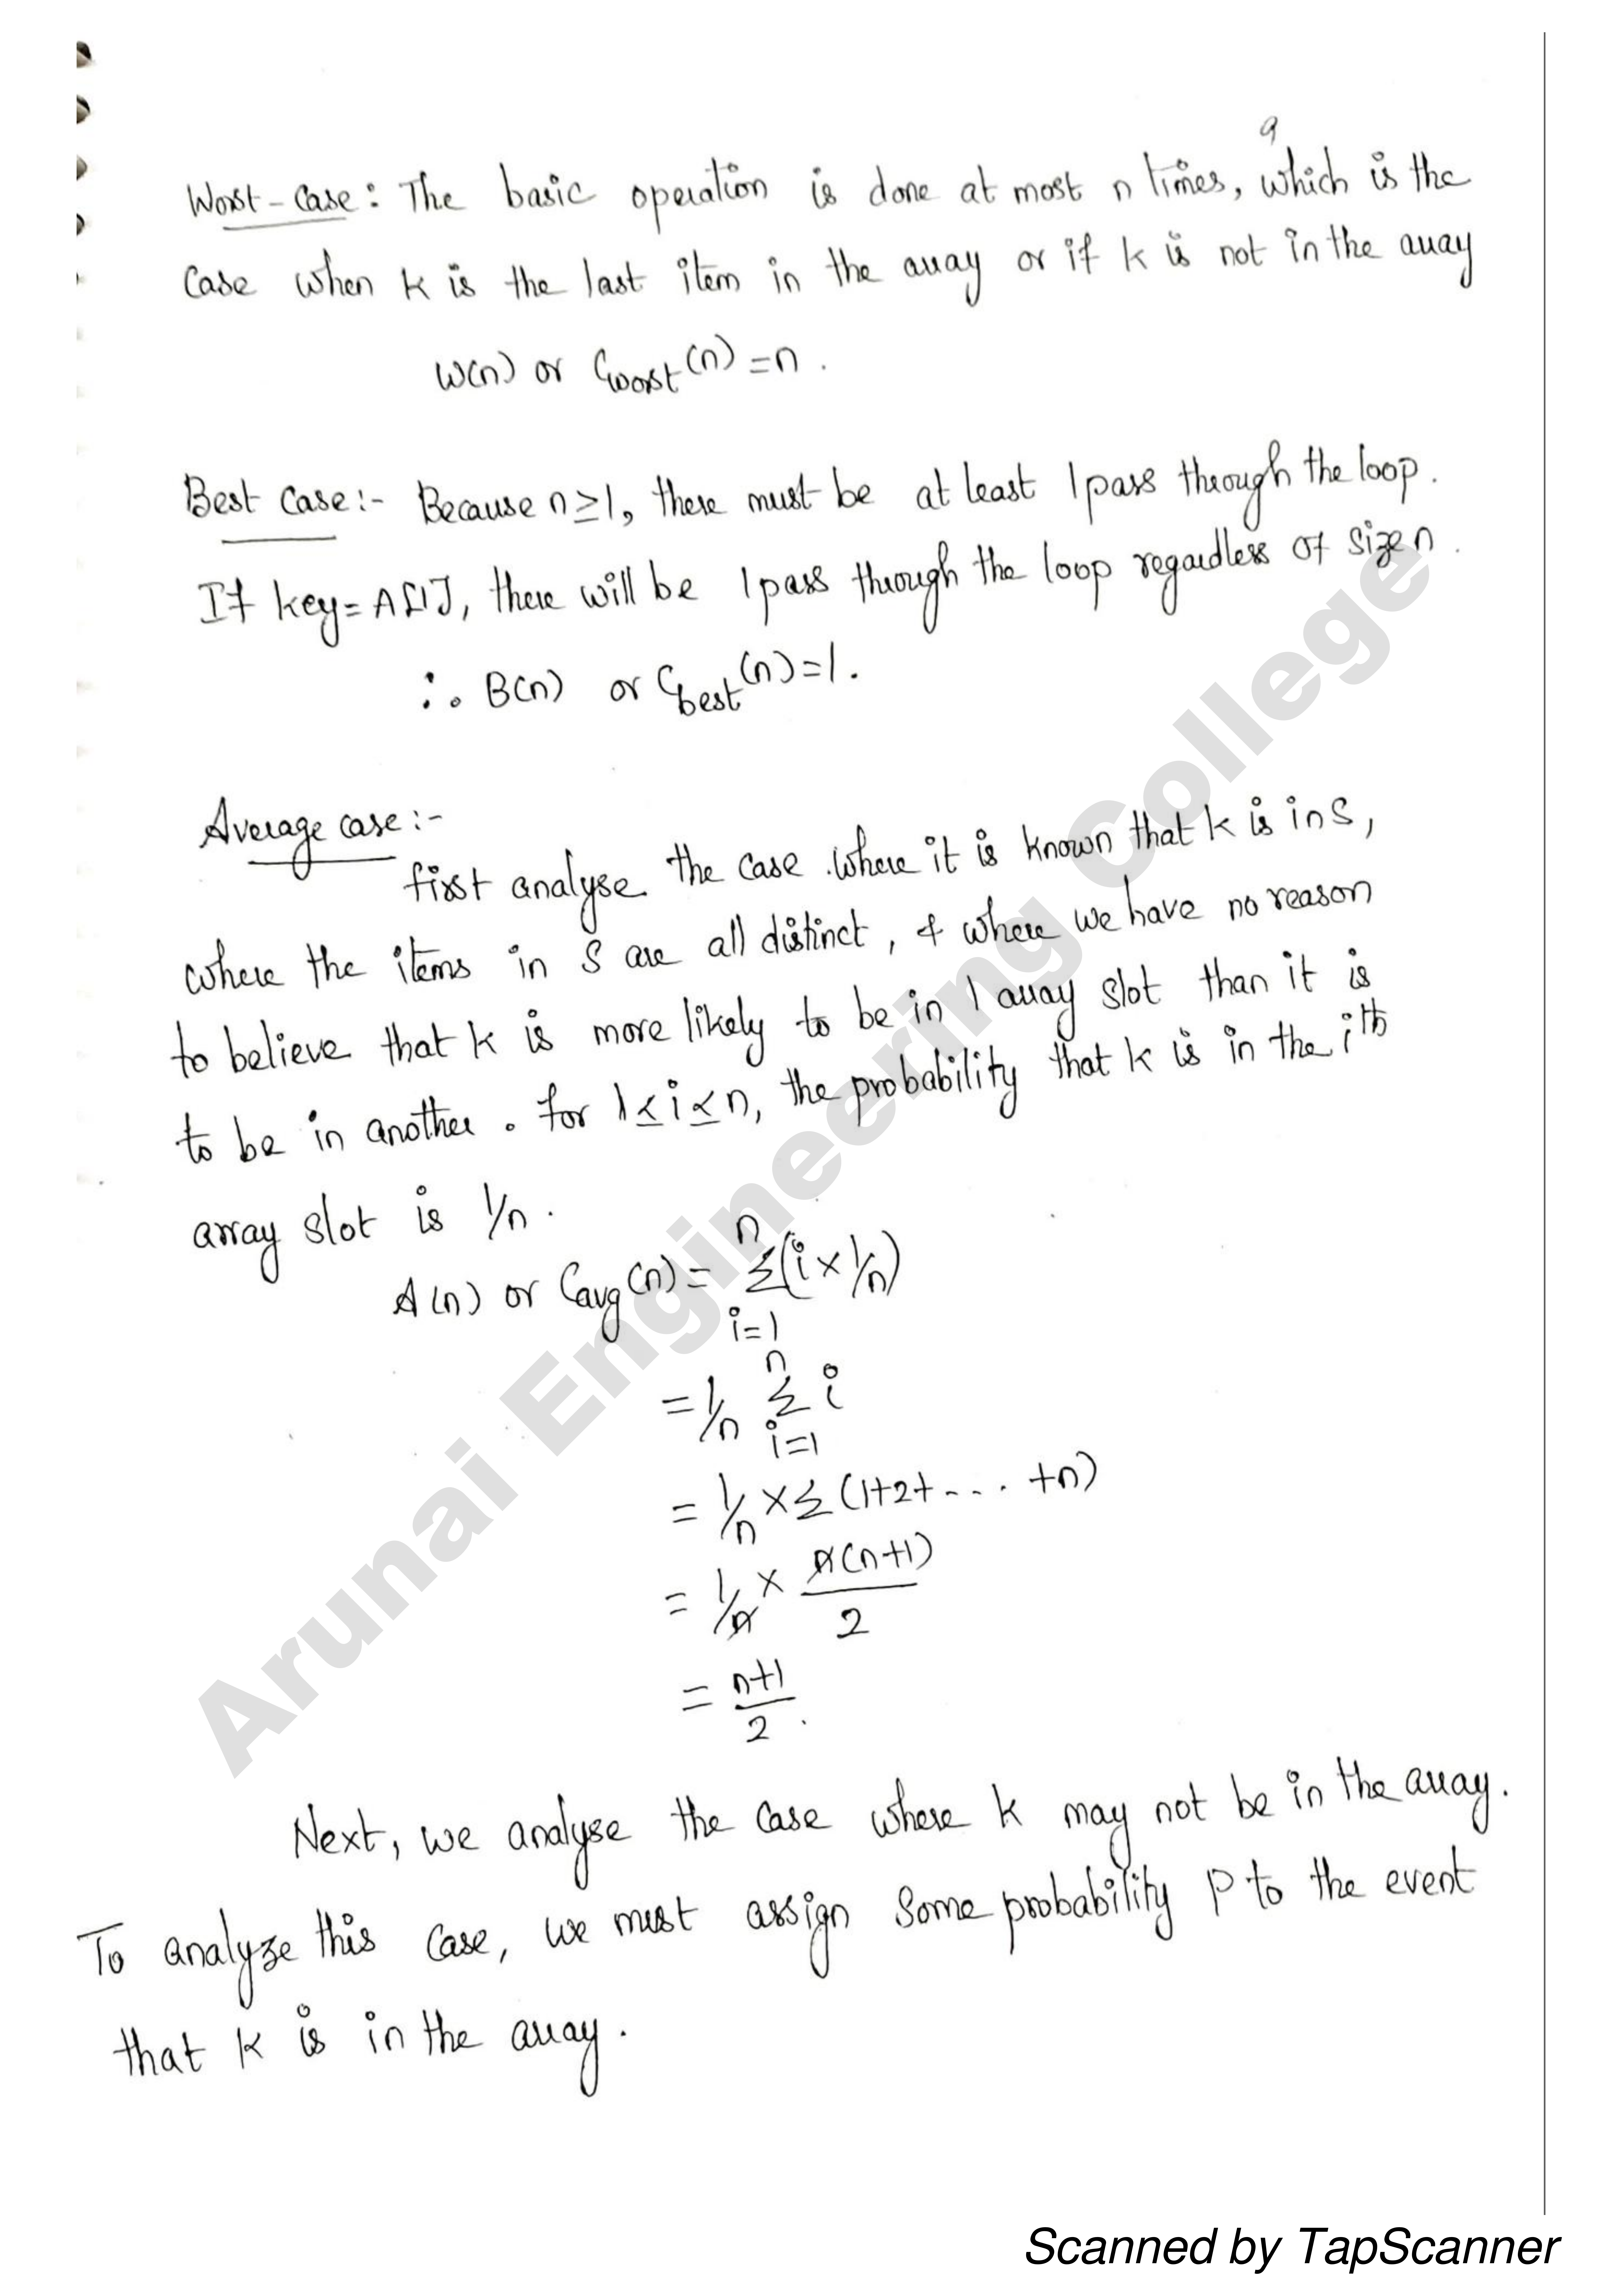 9
Worst-Case: The basic operation is done at most n times, which is the
Case when k is the last item in the array or if k is not in the array
W(n) or Cworst(n) = n.
Best Case:- Because n≥1, there must be at least 1 pass through the loop.
If key = A[1], there will be 1 pass through the loop regardless of size n.
∴ B(n) or Cbest(n) = 1.
Average case:-
first analyse the case where it is known that k is in S,
where the items in S are all distinct, & where we have no reason
to believe that k is more likely to be in 1 array slot than it is
to be in another. for 1≤i≤n, the probability that k is in the ith
array slot is 1/n.
A(n) or Cavg(n) = n∑i=1 (i × 1/n)
= 1/n n∑i=1 i
= 1/n × ∑ (1+2+ ... +n)
= 1/n × n(n+1)/2
= n+1/2.
Next, we analyse the case where k may not be in the array.
To analyze this case, we must assign some probability p to the event
that k is in the array.
Arunai Engineering College
Scanned by TapScanner